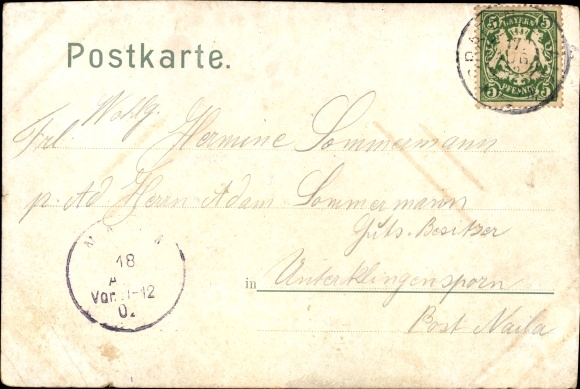 Postkarte.
5 BAYERN 5
5 PFENNIG 5
Wohlg.
Frl. Hermine Sommermann
p. Ad Herrn Adam Sommermann
Guts-Besitzer
in Unterklingensporn
Post Naila
18
Vor. 11-12
02